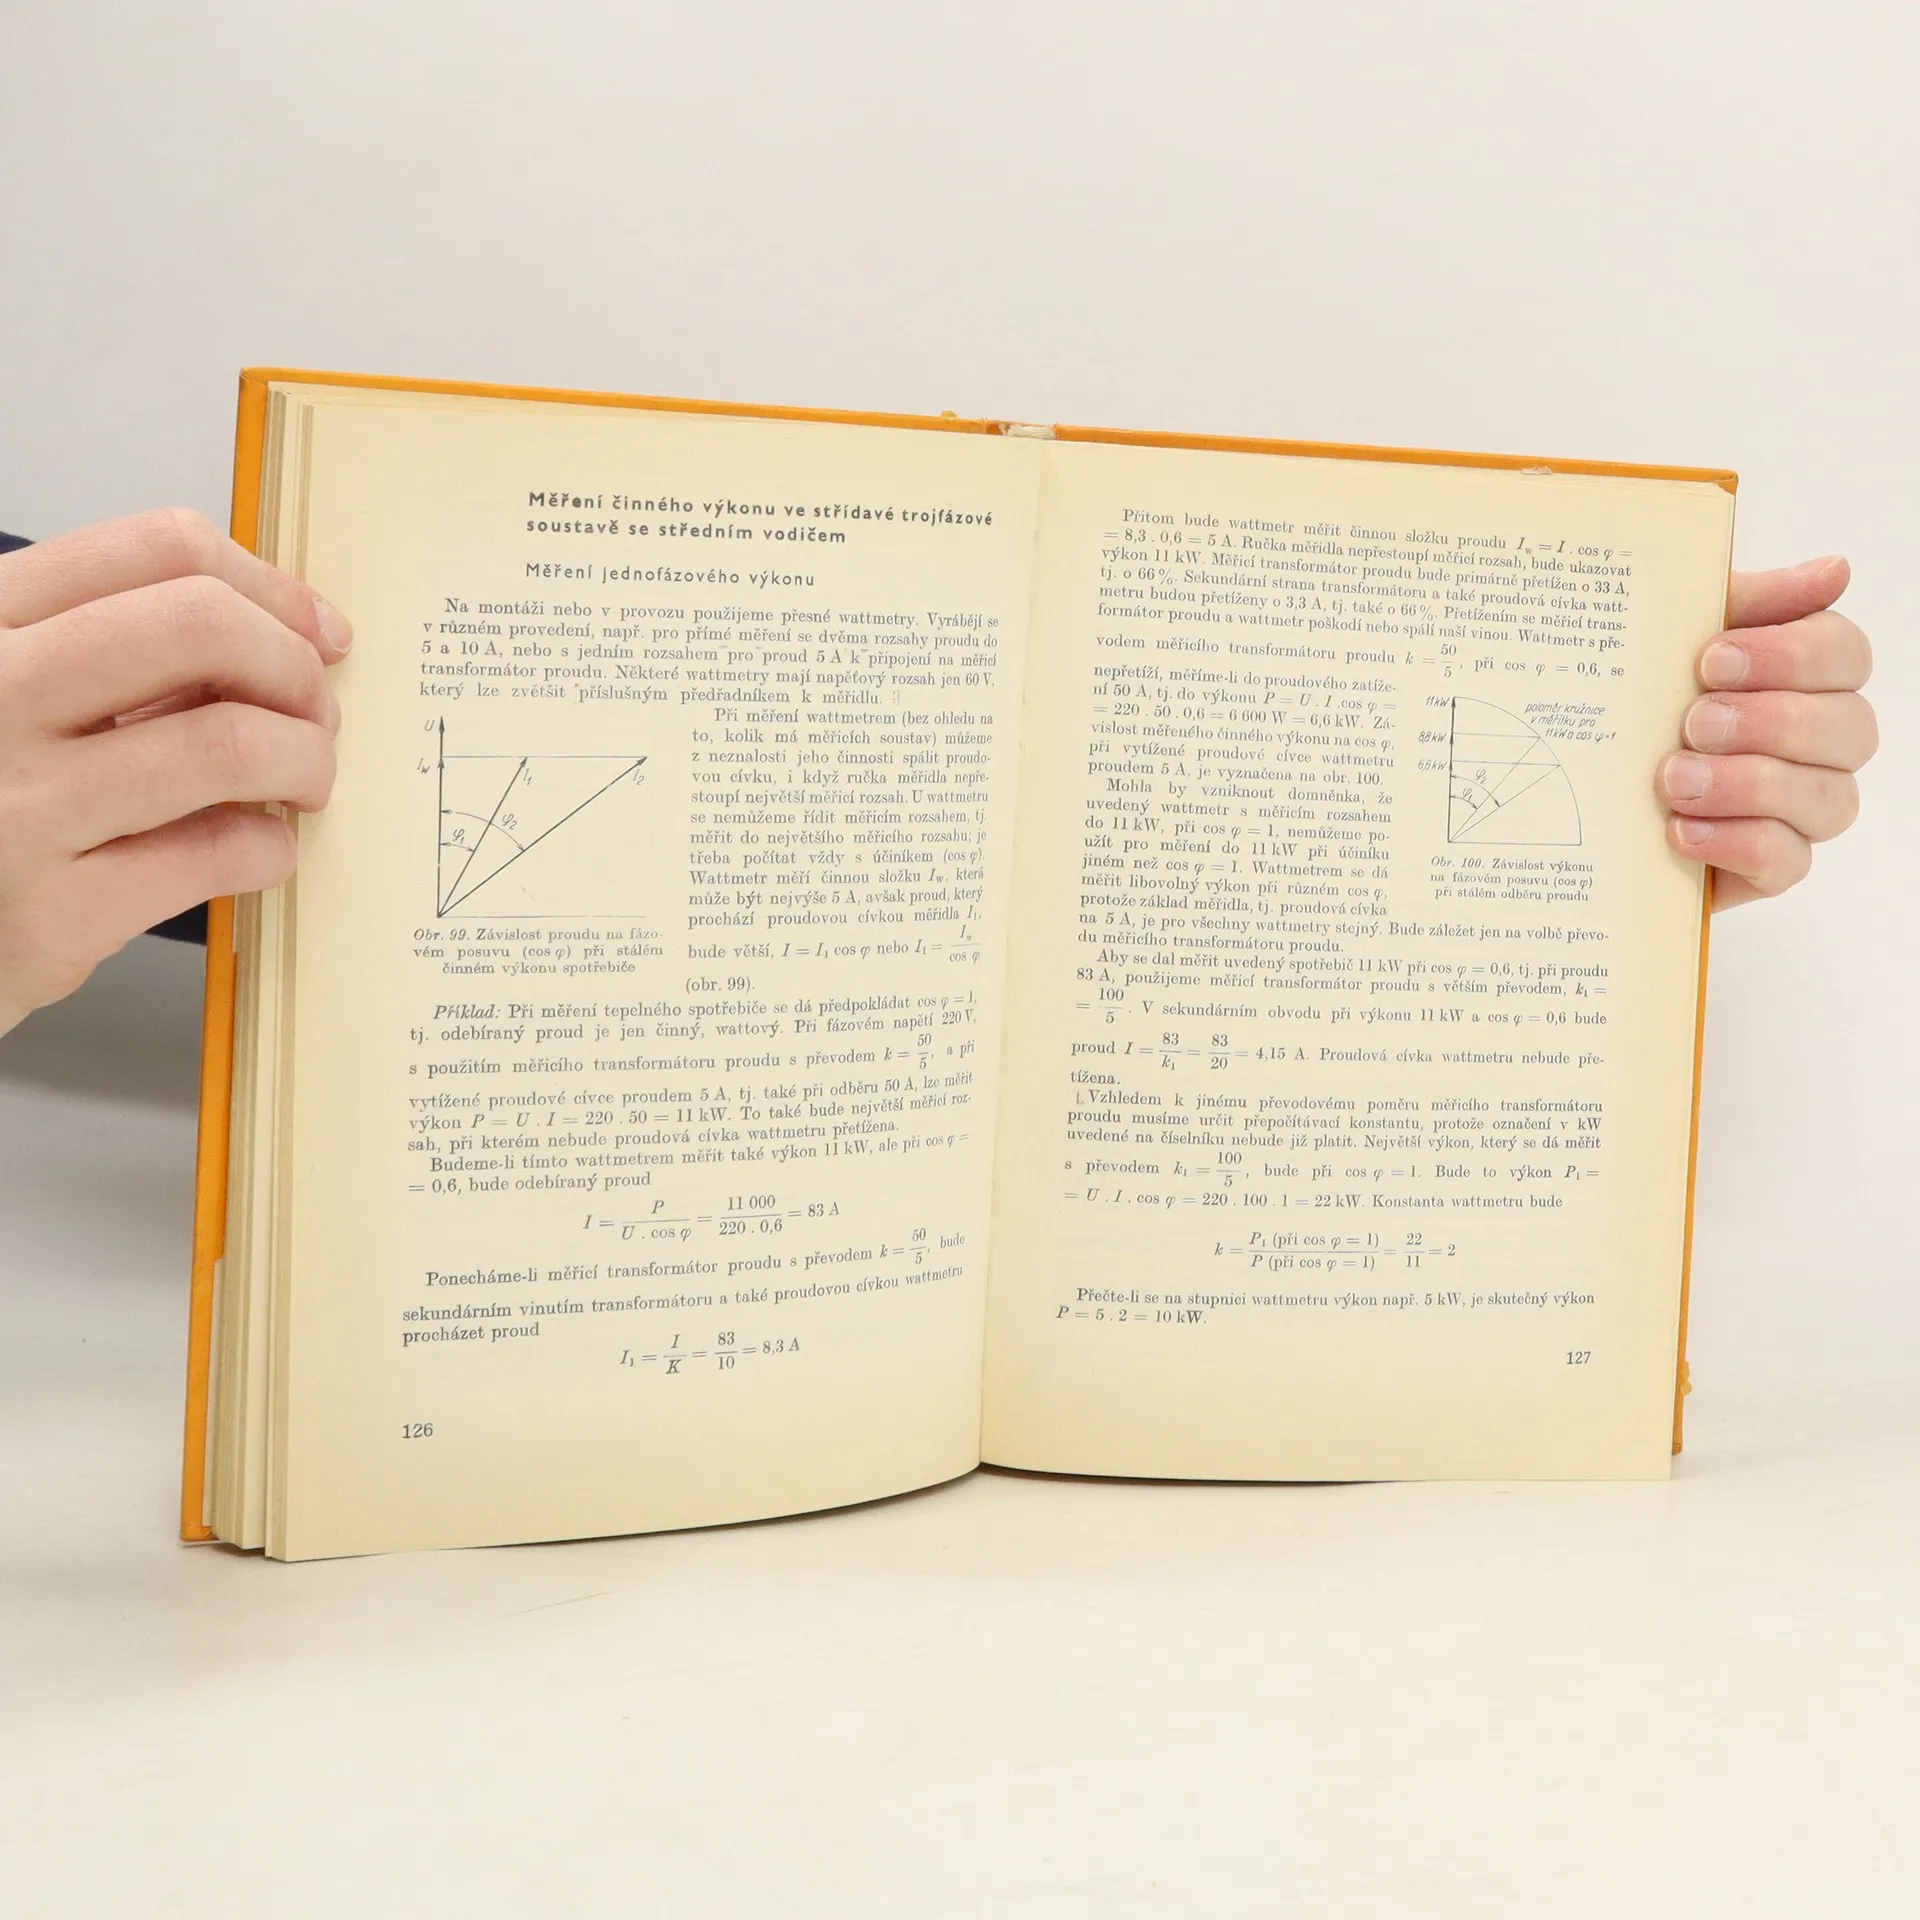 Měření činného výkonu ve střídavé trojfázové
soustavě se středním vodičem
Měření jednofázového výkonu
Na montáži nebo v provozu použijeme přesné wattmetry. Vyrábějí se
v různém provedení, např. pro přímé měření se dvěma rozsahy proudu do
5 a 10 A, nebo s jedním rozsahem pro proud 5 A k připojení na měřicí
transformátor proudu. Některé wattmetry mají napěťový rozsah jen 60 V,
který lze zvětšit příslušným předřadníkem k měřidlu.
U
I_w
I_1
I_2
φ_1
φ_2
Obr. 99. Závislost proudu na fázo-
vém posuvu (cos φ) při stálém
činném výkonu spotřebiče
Při měření wattmetrem (bez ohledu na
to, kolik má měřicích soustav) můžeme
z neznalosti jeho činnosti spálit proudo-
vou cívku, i když ručka měřidla nepře-
stoupí největší měřicí rozsah. U wattmetru
se nemůžeme řídit měřicím rozsahem, tj.
měřit do největšího měřicího rozsahu; je
třeba počítat vždy s účiníkem (cos φ).
Wattmetr měří činnou složku I_w, která
může být nejvýše 5 A, avšak proud, který
prochází proudovou cívkou měřidla I_1,
bude větší, I = I_1 cos φ nebo I_1 = I_w / cos φ
(obr. 99).
Příklad: Při měření tepelného spotřebiče se dá předpokládat cos φ = 1,
tj. odebíraný proud je jen činný, wattový. Při fázovém napětí 220 V,
s použitím měřicího transformátoru proudu s převodem k = 50/5, a při
vytížené proudové cívce proudem 5 A, tj. také při odběru 50 A, lze měřit
výkon P = U . I = 220 . 50 = 11 kW. To také bude největší měřicí roz-
sah, při kterém nebude proudová cívka wattmetru přetížena.
Budeme-li tímto wattmetrem měřit také výkon 11 kW, ale při cos φ =
= 0,6, bude odebíraný proud
I = P / U . cos φ = 11 000 / 220 . 0,6 = 83 A
Ponecháme-li měřicí transformátor proudu s převodem k = 50/5, bude
sekundárním vinutím transformátoru a také proudovou cívkou wattmetru
procházet proud
I_1 = I/K = 83/10 = 8,3 A
126
Přitom bude wattmetr měřit činnou složku proudu I_w = I . cos φ =
= 8,3 . 0,6 = 5 A. Ručka měřidla nepřestoupí měřicí rozsah, bude ukazovat
výkon 11 kW. Měřicí transformátor proudu bude primárně přetížen o 33 A,
tj. o 66 %. Sekundární strana transformátoru a také proudová cívka watt-
metru budou přetíženy o 3,3 A, tj. také o 66 %. Přetížením se měřicí trans-
formátor proudu a wattmetr poškodí nebo spálí naší vinou. Wattmetr s pře-
vodem měřicího transformátoru proudu k = 50/5, při cos φ = 0,6, se
nepřetíží, měříme-li do proudového zatíže-
ní 50 A, tj. do výkonu P = U . I . cos φ =
= 220 . 50 . 0,6 = 6 600 W = 6,6 kW. Zá-
vislost měřeného činného výkonu na cos φ,
při vytížené proudové cívce wattmetru
proudem 5 A, je vyznačena na obr. 100.
Mohla by vzniknout domněnka, že
uvedený wattmetr s měřicím rozsahem
do 11 kW, při cos φ = 1, nemůžeme po-
užít pro měření do 11 kW při účiníku
jiném než cos φ = 1. Wattmetrem se dá
měřit libovolný výkon při různém cos φ,
protože základ měřidla, tj. proudová cívka
11 kW
8,8 kW
6,6 kW
φ_2
φ_1
poloměr kružnice
v měřítku pro
11 kW a cos φ=1
Obr. 100. Závislost výkonu
na fázovém posuvu (cos φ)
při stálém odběru proudu
na 5 A, je pro všechny wattmetry stejný. Bude záležet jen na volbě převo-
du měřicího transformátoru proudu.
Aby se dal měřit uvedený spotřebič 11 kW při cos φ = 0,6, tj. při proudu
83 A, použijeme měřicí transformátor proudu s větším převodem, k_1 =
= 100/5. V sekundárním obvodu při výkonu 11 kW a cos φ = 0,6 bude
proud I = 83/k_1 = 83/20 = 4,15 A. Proudová cívka wattmetru nebude pře-
tížena.
Vzhledem k jinému převodovému poměru měřicího transformátoru
proudu musíme určit přepočítávací konstantu, protože označení v kW
uvedené na číselníku nebude již platit. Největší výkon, který se dá měřit
s převodem k_1 = 100/5, bude při cos φ = 1. Bude to výkon P_1 =
= U . I . cos φ = 220 . 100 . 1 = 22 kW. Konstanta wattmetru bude
k = P_1 (při cos φ = 1) / P (při cos φ = 1) = 22/11 = 2
Přečte-li se na stupnici wattmetru výkon např. 5 kW, je skutečný výkon
P = 5 . 2 = 10 kW.
127